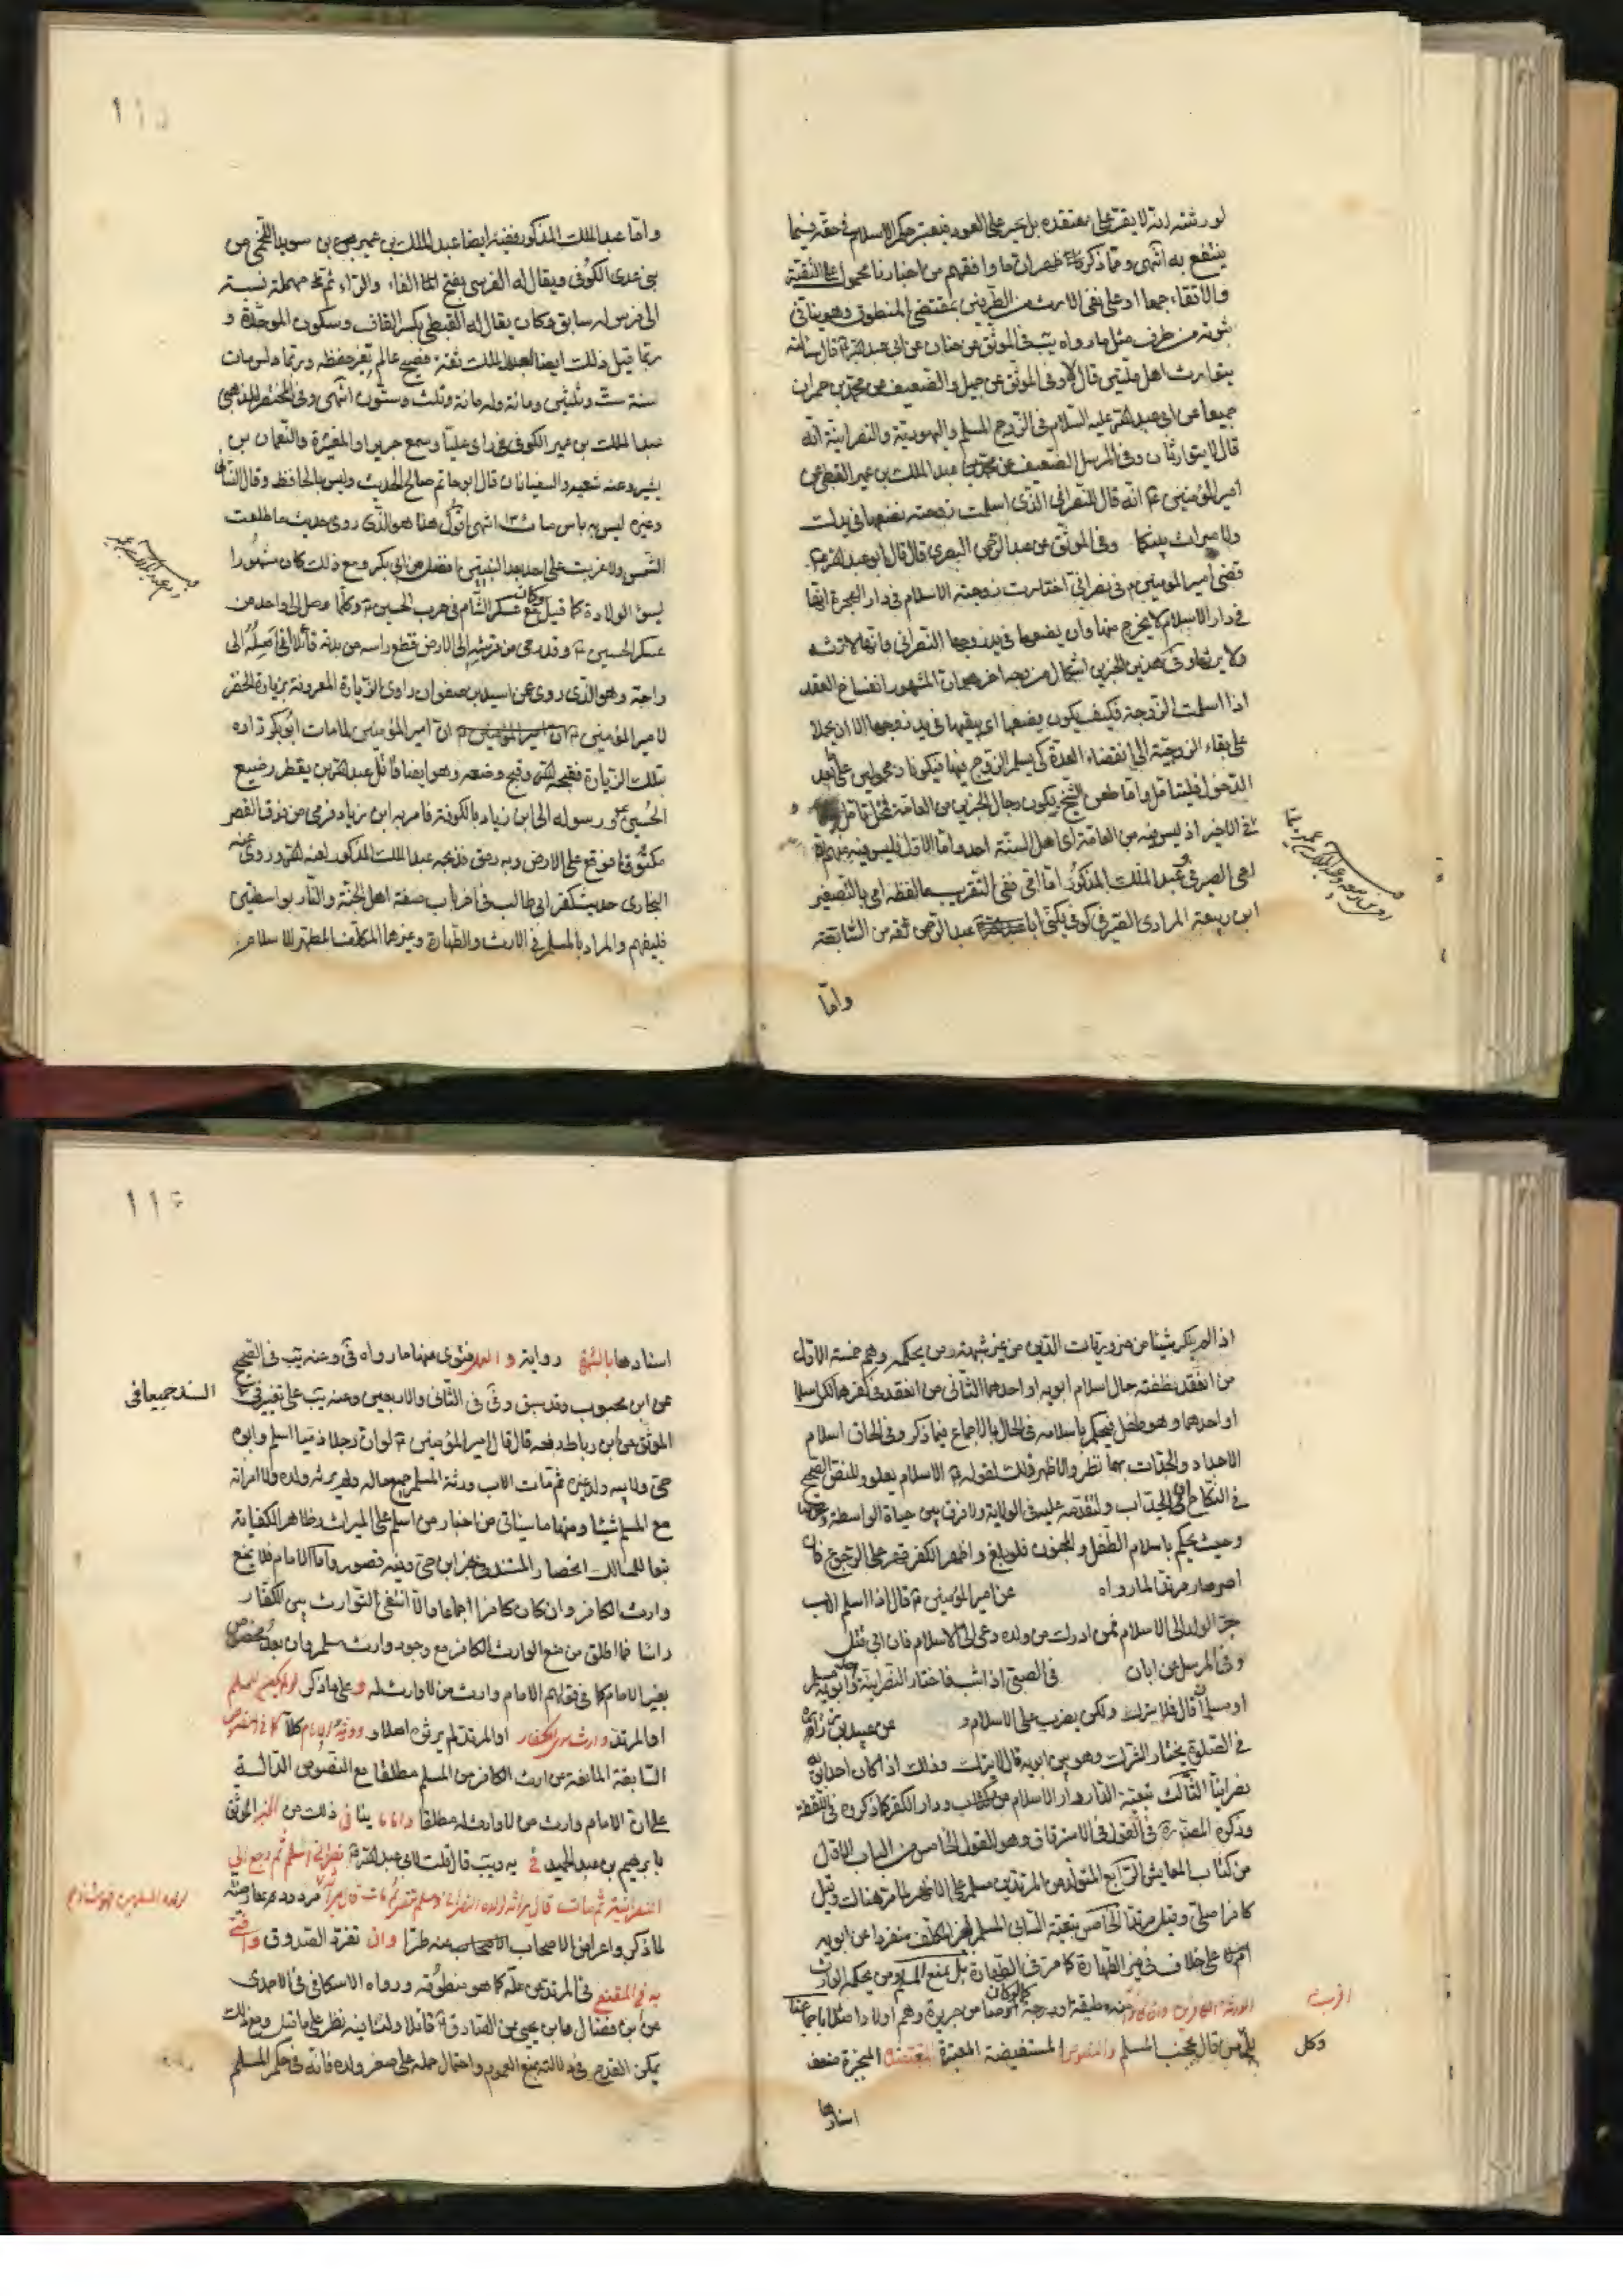 لو رثته انه لا يقر على معتقده بل يجبر على العود فيعتبر حكم الاسلام في حقه فيما
ينتفع به انتهى ومما ذكر ظهر ان ما وافقهم من اخبارنا محمول على التقية
والاتقاء جمعا او على نفى الارث من الطرفين بمقتضى المنطوق وهو ينافي
ثبوته من طرف مثل ما رواه يب في الموثق عن حنان عن ابي عبد الله قال سألته
يتوارث اهل ملتين قال لا وفى الموثق عن جميل والضعيف عن محمد بن حمران
جميعا عن ابي عبد الله عليه السلام في الزوج المسلم واليهودية والنصرانية انه
قال لا يتوارثان وفى المرسل الضعيف عن عبد الملك بن عمير القبطى عن
امير المؤمنين انه قال للنصراني الذى اسلمت زوجته بضعها في يدك
ولا ميراث بينكما وفى الموثق عن عبد الرحمن البصرى قال قال ابو عبد الله
قضى امير المؤمنين في نصراني اختارت زوجته الاسلام في دار الهجرة انها
في دار الاسلام لا يخرج منها وان بضعها في يد زوجها النصراني وانها لا ترثه
ولا يرثها وفى هذين الخبرين اشكال من وجه اخر هو ان المشهور انفساخ العقد
اذا اسلمت الزوجة فكيف يكون بضعها اى يبقيها في يد زوجها الا ان يحملا
على بقاء الزوجية الى انقضاء العدة كى يسلم الزوج فيها فيكونا محمولين على بعد
الدخول فليتامل واما طعن الشيخ بكون رجال الخبرين من العامة فمحل تامل
في الاخير اذ ليس فيه من العامة اى اهل السنة احد واما الاول فليس فيه منهم
امى الصيرفى وعبد الملك المذكور اما امى ففى التقريب ما لفظه امى بالتصغير
ابن ربيعة المرادى الصيرفى كوفى يكنى ابا عبد الرحمن ثقه من السابعة
واما
١١٥
واما عبد الملك المذكور ففيه ايضا عبد الملك بن عمير بن سويد اللخمى من
بنى عدى الكوفى ويقال له الفرسى بفتح الفاء والراء ثم مهملة نسبة
الى فرس له سابق وكان يقال له القبطى بكسر القاف وسكون الموحدة و
ربما قيل ذلك ايضا لعبد الملك ثقة فصيح عالم تغير حفظه وربما دلس مات
سنة ست وثلثين ومائة وله مائة وثلث وستون انتهى وفى المختصر للذهبى
عبد الملك بن عمير الكوفى راى عليا وسمع جريرا والمغيرة والنعمان بن
بشير وعنه شعبه والسفيانان قال ابو حاتم صالح الحديث وليس بالحافظ وقال النسائى
وغيره ليس به باس مات انتهى اقول هذا هو الذى روى حديث ما طلعت
الشمس ولا غربت على احد بعد النبيين افضل من ابي بكر ومع ذلك كان مشهورا
بسوء الولادة كما قيل وكان مع عسكر الشام في حرب الحسين وكلما وصل الى واحد من
عسكر الحسين وقد رمى من فرسه الى الارض قطع راسه من بدنه قائلا انى اصله الى
راحة وهو الذى روى عن اسيد بن صفوان راوى الزيارة المعروفة بزيارة الخضر
لامير المؤمنين ان امير المؤمنين لما مات ابو بكر زاده
بتلك الزيارة فقبحه الله وقبح وضعه وهو ايضا قاتل عبد الله بن يقطر رضيع
الحسين ورسوله الى ابن زياد بالكوفة فامر به ابن زياد فرمى من فوق القصر
مكتوفا فوقع على الارض وبه رمق فذبحه عبد الملك المذكور لعنه الله وروى عنه
البخارى حديث كفر ابي طالب في اخر باب صفة اهل الجنة والنار بواسطتين
فليفهم والمراد بالمسلم في الارث والطهارة وغيرهما المكلف المظهر للاسلام
اذا لم ينكر شيئا من ضروريات الدين من غير شبهة ومن بحكمه وهم خمسة الاول
من انعقد نطفته حال اسلام ابويه او احدهما الثانى من انعقد في كفرهما لكن اسلما
او احدهما وهو طفل فيحكم باسلامه في الحال بالاجماع فيما ذكر وفى الحاق اسلام
الاجداد والجدات بهما نظر والاظهر ذلك لقوله الاسلام يعلو وللنص الصحيح
في النكاح ان الجد اب ولتقدمه عليه في الولاية ولا فرق بين حياة الواسطة وموتها
وحيث يحكم باسلام الطفل والمجنون فلو بلغ واظهر الكفر قهر على الرجوع فان
اصر صار مرتدا لما رواه عن امير المؤمنين قال اذا اسلم الاب
جر الولد الى الاسلام فمن ادرك من ولده دعى الى الاسلام فان ابى قتل
وفى المرسل عن ابان في الصبى اذا شب فاختار النصرانية واحد ابويه
او مسلما قال فلا يترك ولكن يضرب على الاسلام و عن عبيد بن زرارة
في الصبى يختار الشرك وهو بين ابويه قال لا يترك وذلك اذا كان احد ابويه
نصرانيا الثالث تبعية الدار دار الاسلام ودار الكفر كما ذكروه في اللقطة
وذكره المصنف في القول في الاسترقاق وهو القول الخامس من الباب الاول
من كتاب المعايش الرابع المتولد من المرتدين مسلم على الاظهر لما مر هناك وقيل
كافر اصلى وقيل مرتد الخامس بتبعية السابى المسلم لغير المكلف منفردا عن ابويه
على خلاف في غير الطهارة كما مر في الطهارة بل يمنع المسلم ومن بحكمه الوارث
اقربيت
وكل من قال بحجب المسلم والنصوص المستفيضة المعتبرة المعتضدة المجبرة ضعف
اسنادها
١١٦
اسنادها بالشهرة رواية والعمل فتوى منها ما رواه في وعنه يب في الصحيح
السند جميعا في
عن ابن محبوب وقد سبق وفى في الثانى والاربعين وعنه يب على تغيير في
الموثق عن ابن رباط رفعه قال قال امير المؤمنين لو ان رجلا ذميا اسلم وابوه
حى ولابيه ولد غيره ثم مات الاب ورثه المسلم جميع ماله ولم يرثه ولده ولا امراته
مع المسلم شيئا ومنها ما سياتى من اخبار من اسلم على الميراث وظاهر الكفاية
تبعا للمسالك انحصار المستند في خبر ابن حى وفيه قصور واما الامام فلا يمنع
وارث الكافر وان كان كافرا اجماعا والا انتفى التوارث بين الكفار
راسا فما اطلق من منع الوارث الكافر مع وجود وارث مسلم وان بعد مخصوص
بغير الامام كما في قولهم الامام وارث من لا وارث له وعلى ما ذكر لو لم يكن للمسلم
او المرتد وارث سوى الكفار او المرتد لم يرثوه اصلا و ورثه الامام كلا كما في النصوص
السابقة المانعة من ارث الكافر من المسلم مطلقا مع النصوص الدالة
على ان الامام وارث من لا وارث له مطلقا واما ما ينافى ذلك من الخبر الموثق
بابرهيم بن عبد الحميد في يه ويب قال قلت لابي عبد الله نصرانى اسلم ثم رجع الى
النصرانية ثم مات قال ميراثه لولده النصارى ومسلم تنصر ثم مات قال ميراثه
لولده المسلمين فهو شاذ
لما ذكر واعراض الاصحاب عنه طرا وان تفرد الصدوق وافتى
به في المقنع في المرتد عن ملة كما هو منطوقه ورواه الاسكافى في الاحمدى
عن ابن فضال وابن يحيى عن الصادق قائلا ولنا فيه نظر على ما قيل ومع ذلك
يمكن القدح في دلالته بمنع العموم واحتمال حمله على صغر ولده فانه في حكم المسلم